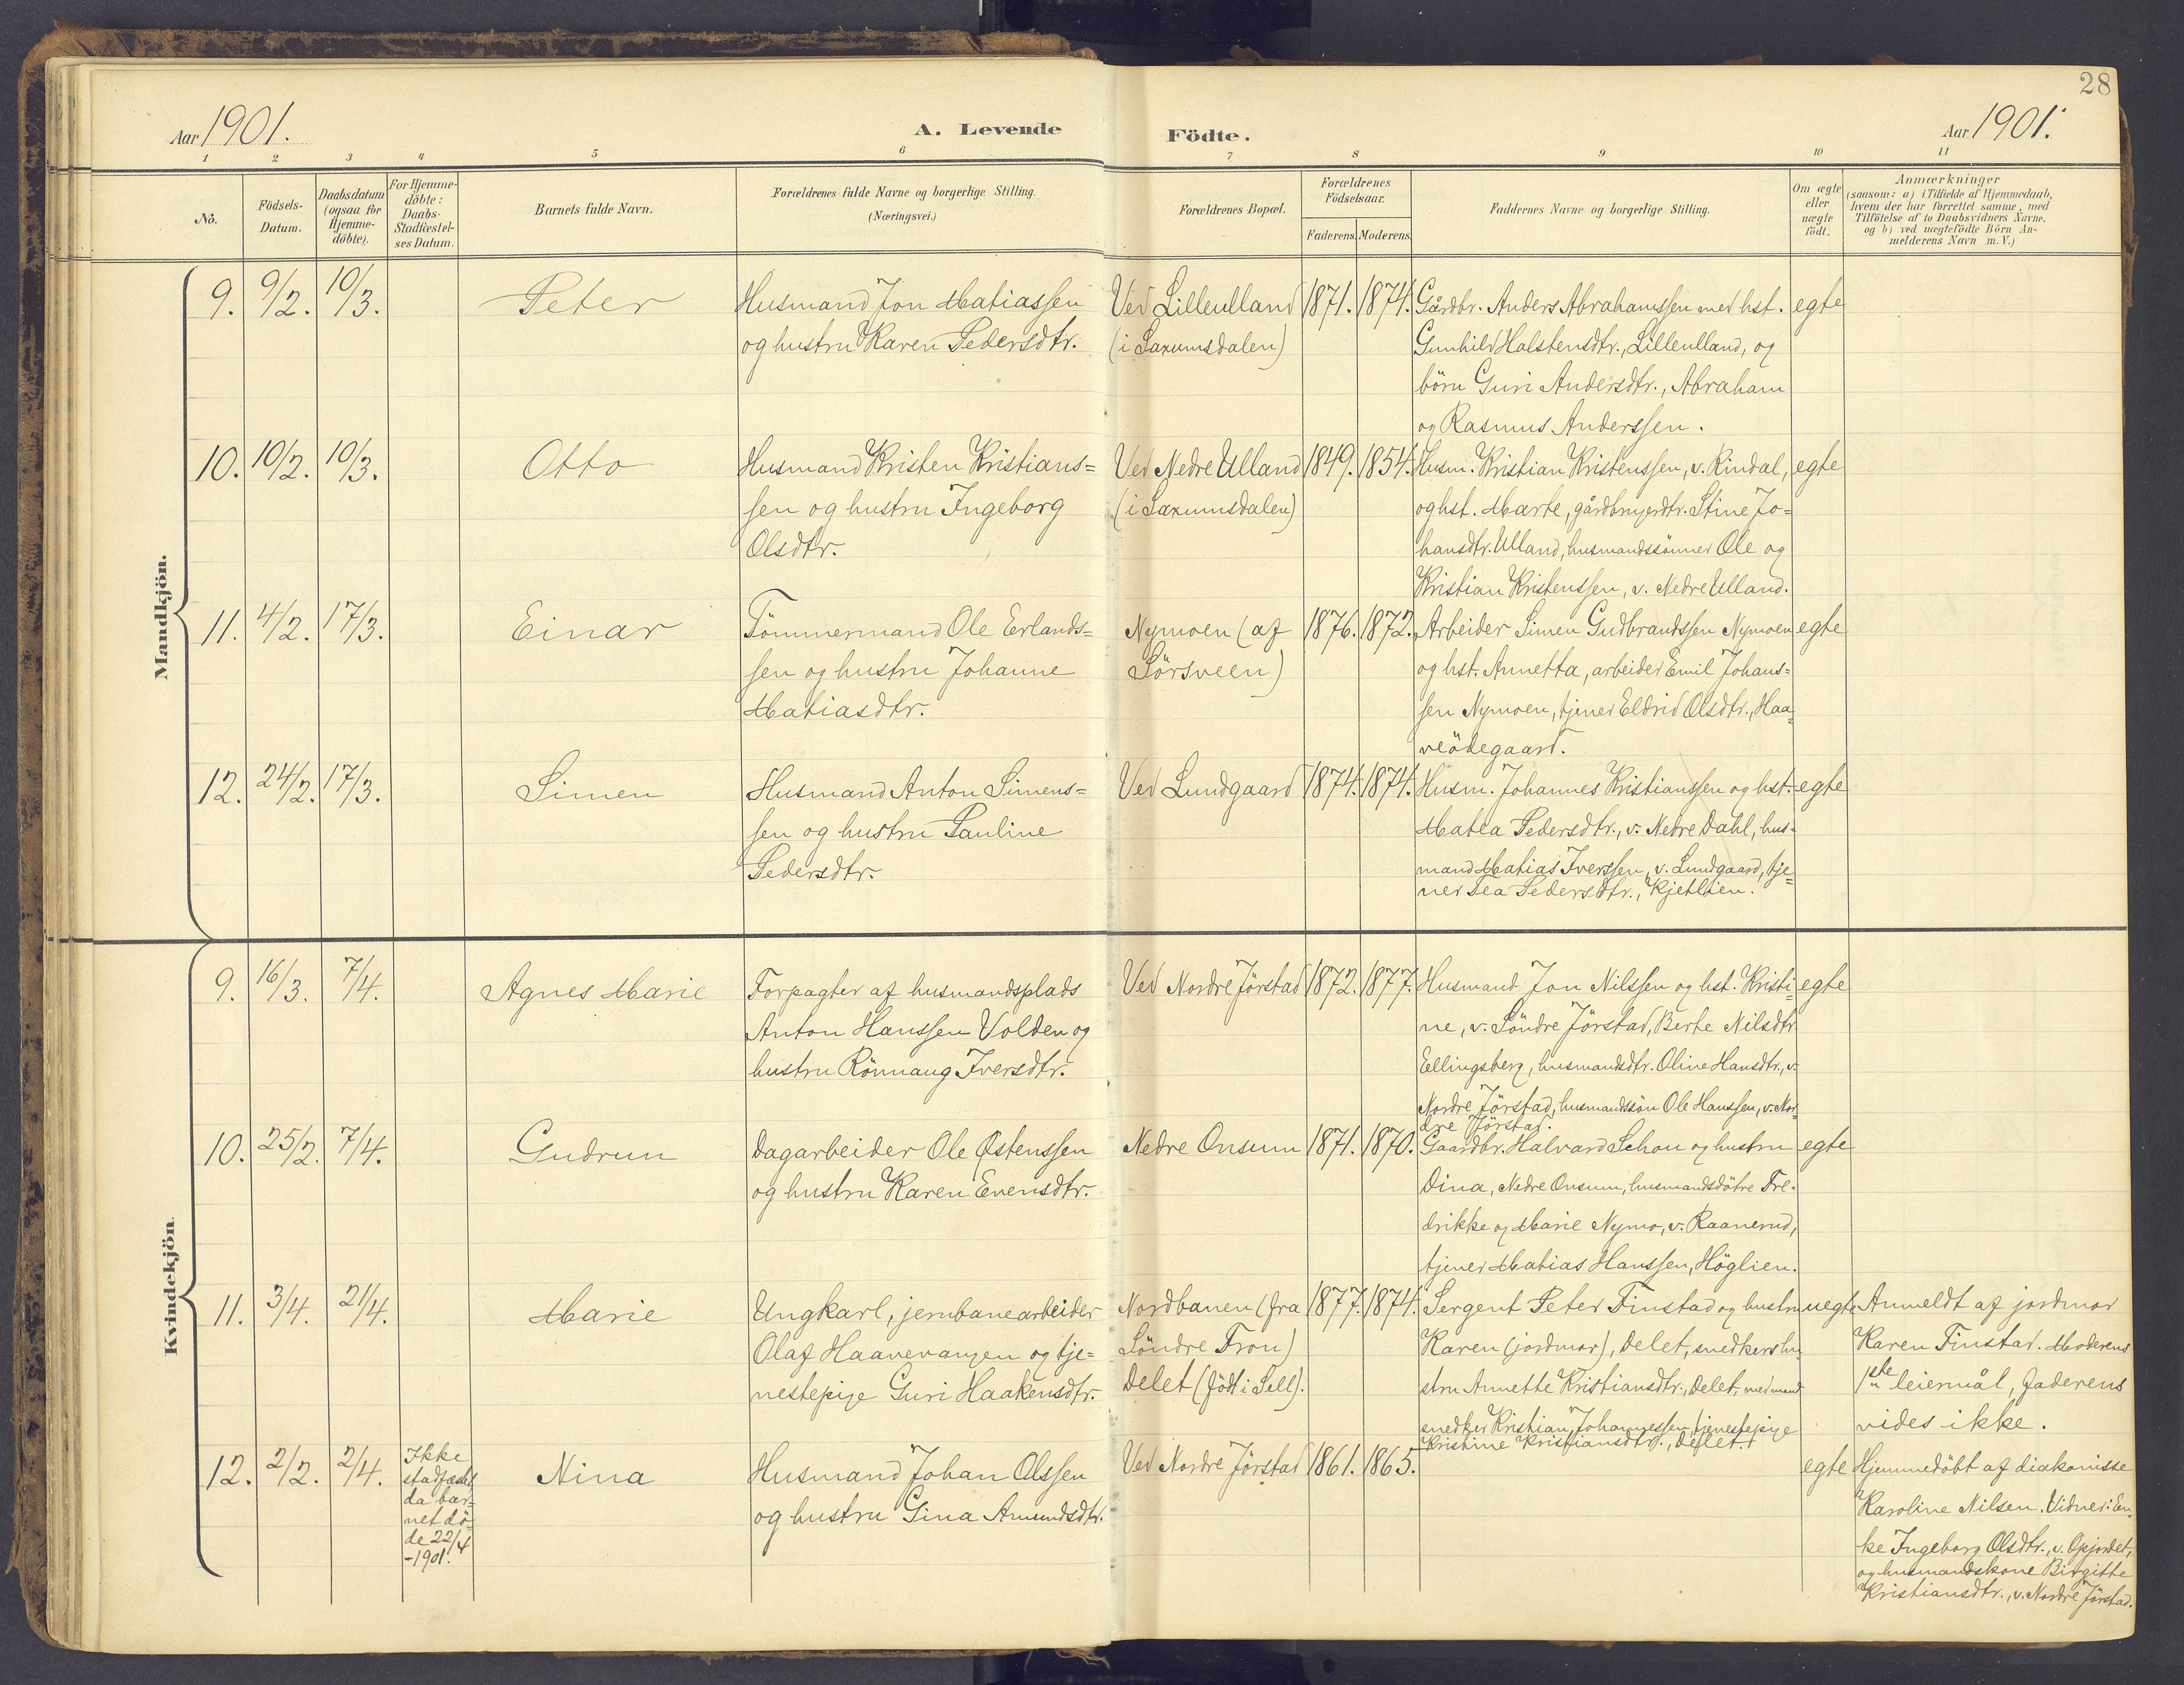 28
Aar 1901.
A. Levende Födte.
Aar 1901.
1 2 3 4 5 6 7 8 9 10 11
No.
Födsels-
Datum.
Daabsdatum
(ogsaa for
Hjemme-
döbte).
For Hjemme-
döbte:
Daabs-
Stadfæstel-
ses Datum.
Barnets fulde Navn.
Forældrenes fulde Navne og borgerlige Stilling.
(Næringsvei.)
Forældrenes Bopæl.
Forældrenes
Födselsaar.
Faderens. Moderens.
Faddernes Navne og borgerlige Stilling.
Om ægte
eller
uægte
födt.
Anmærkninger
(saasom: a) i Tilfælde af Hjemmedaab,
hvem der har forrettet samme, med
Tilföielse af to Daabsvidners Navne.
og b) ved uægtefödte Börn An-
melderens Navn m. V.)
Mandkjön.
9. 9/2. 10/3. Peter
Husmand Jon Matiassen
og hustru Karen Pedersdtr.
Ved Lilleulland
(i Saxumsdalen)
1871. 1874.
Gårdbr. Anders Abrahamssen med hst.
Gunhild Halstensdtr., Lilleulland, og
börn Guri Andersdtr., Abraham
og Rasmus Anderssen.
egte
10. 10/2. 10/3. Otto
Husmand Kristen Kristians=
sen og hustru Ingeborg
Olsdtr.
Ved Nedre Ulland
(i Saxumsdalen)
1849. 1854.
Husm. Kristian Kristenssen, v. Rindal,
og hst. Marte, gårdbrugerdtr. Stine Jo=
hansdtr. Ulland, husmandssönner Ole og
Kristian Kristenssen, v. Nedre Ulland.
egte
11. 4/2. 17/3. Einar
Tömmermand Ole Erlands=
sen og hustru Johanne
Matiasdtr.
Nymoen (af
Sörsveen)
1876. 1872.
Arbeider Simen Gudbrandssen Nymoen
og hst. Annetta, arbeider Emil Johans=
sen Nymoen, tjener Eldrid Olsdtr., Haa=
veödegaard.
egte
12. 24/2. 17/3. Simen
Husmand Anton Simens=
sen og hustru Pauline
Pedersdtr.
Ved Lundgaard
1874. 1874.
Husm. Johannes Kristianssen og hst.
Matea Pedersdtr., v. Nedre Dahl, hus=
mand Matias Iverssen, v. Lundgaard, tje=
ner Lea Pedersdtr., Kjetlien.
egte
Kvindekjön
9. 16/3. 7/4. Agnes Marie
Forpagter af husmandsplads
Anton Hanssen Volden og
hustru Rönnaug Iversdtr.
Ved Nordre Jörstad
1872. 1877.
Husmand Jon Nilssen og hst. Kristi=
ne, v. Söndre Jörstad, Berte Nilsdtr
Ellingsberg, husmandsdtr. Oline Hansdtr., v.
Nordre Jörstad, husmandssön Ole Hanssen, v. Nor=
dre Jörstad.
egte
10. 25/2. 7/4. Gudrun
Dagarbeider Ole Østenssen
og hustru Karen Evensdtr.
Nedre Onsum
1871. 1870.
Gaardbr. Halvard Schou og hustru
Dina, Nedre Onsum, husmandsdötre Fre=
drikke og Marie Nymo, v. Raanerud,
tjener Matias Hanssen, Höglien.
egte
11. 3/4. 21/4. Marie
Ungkarl, jernbanearbeider
Olaf Haavevangen og tje=
nestepige Guri Haakensdtr.
Nordbanen (fra
Söndre Fron)
Delet (född i Sell).
1877. 1874.
Sergent Peter Finstad og hustru
Karen (jordmor), Delet, snedkers hu=
stru Annette Kristiansdtr., Delet, med mand
snedker Kristian Johannessen, tjenestepige
Kristine Kristiansdtr., Delet.
uegte
Anmeldt af jordmor
Karen Finstad. Moderens
1ste leiermål, faderens
vides ikke.
12. 2/2. 2/4.
Ikke
stadfæstet
da bar=
net dö=
de 22/4
-1901.
Nina
Husmand Johan Olssen
og hustru Gina Amundsdtr.
Ved Nordre Jörstad
1861. 1865.
egte
Hjemmedöbt af diakonisse
Karoline Nilsen. Vidner: En=
ke Ingeborg Olsdtr., v. Opjordet,
og husmandskone Birgitte
Kristiansdtr., v. Nordre Jörstad.